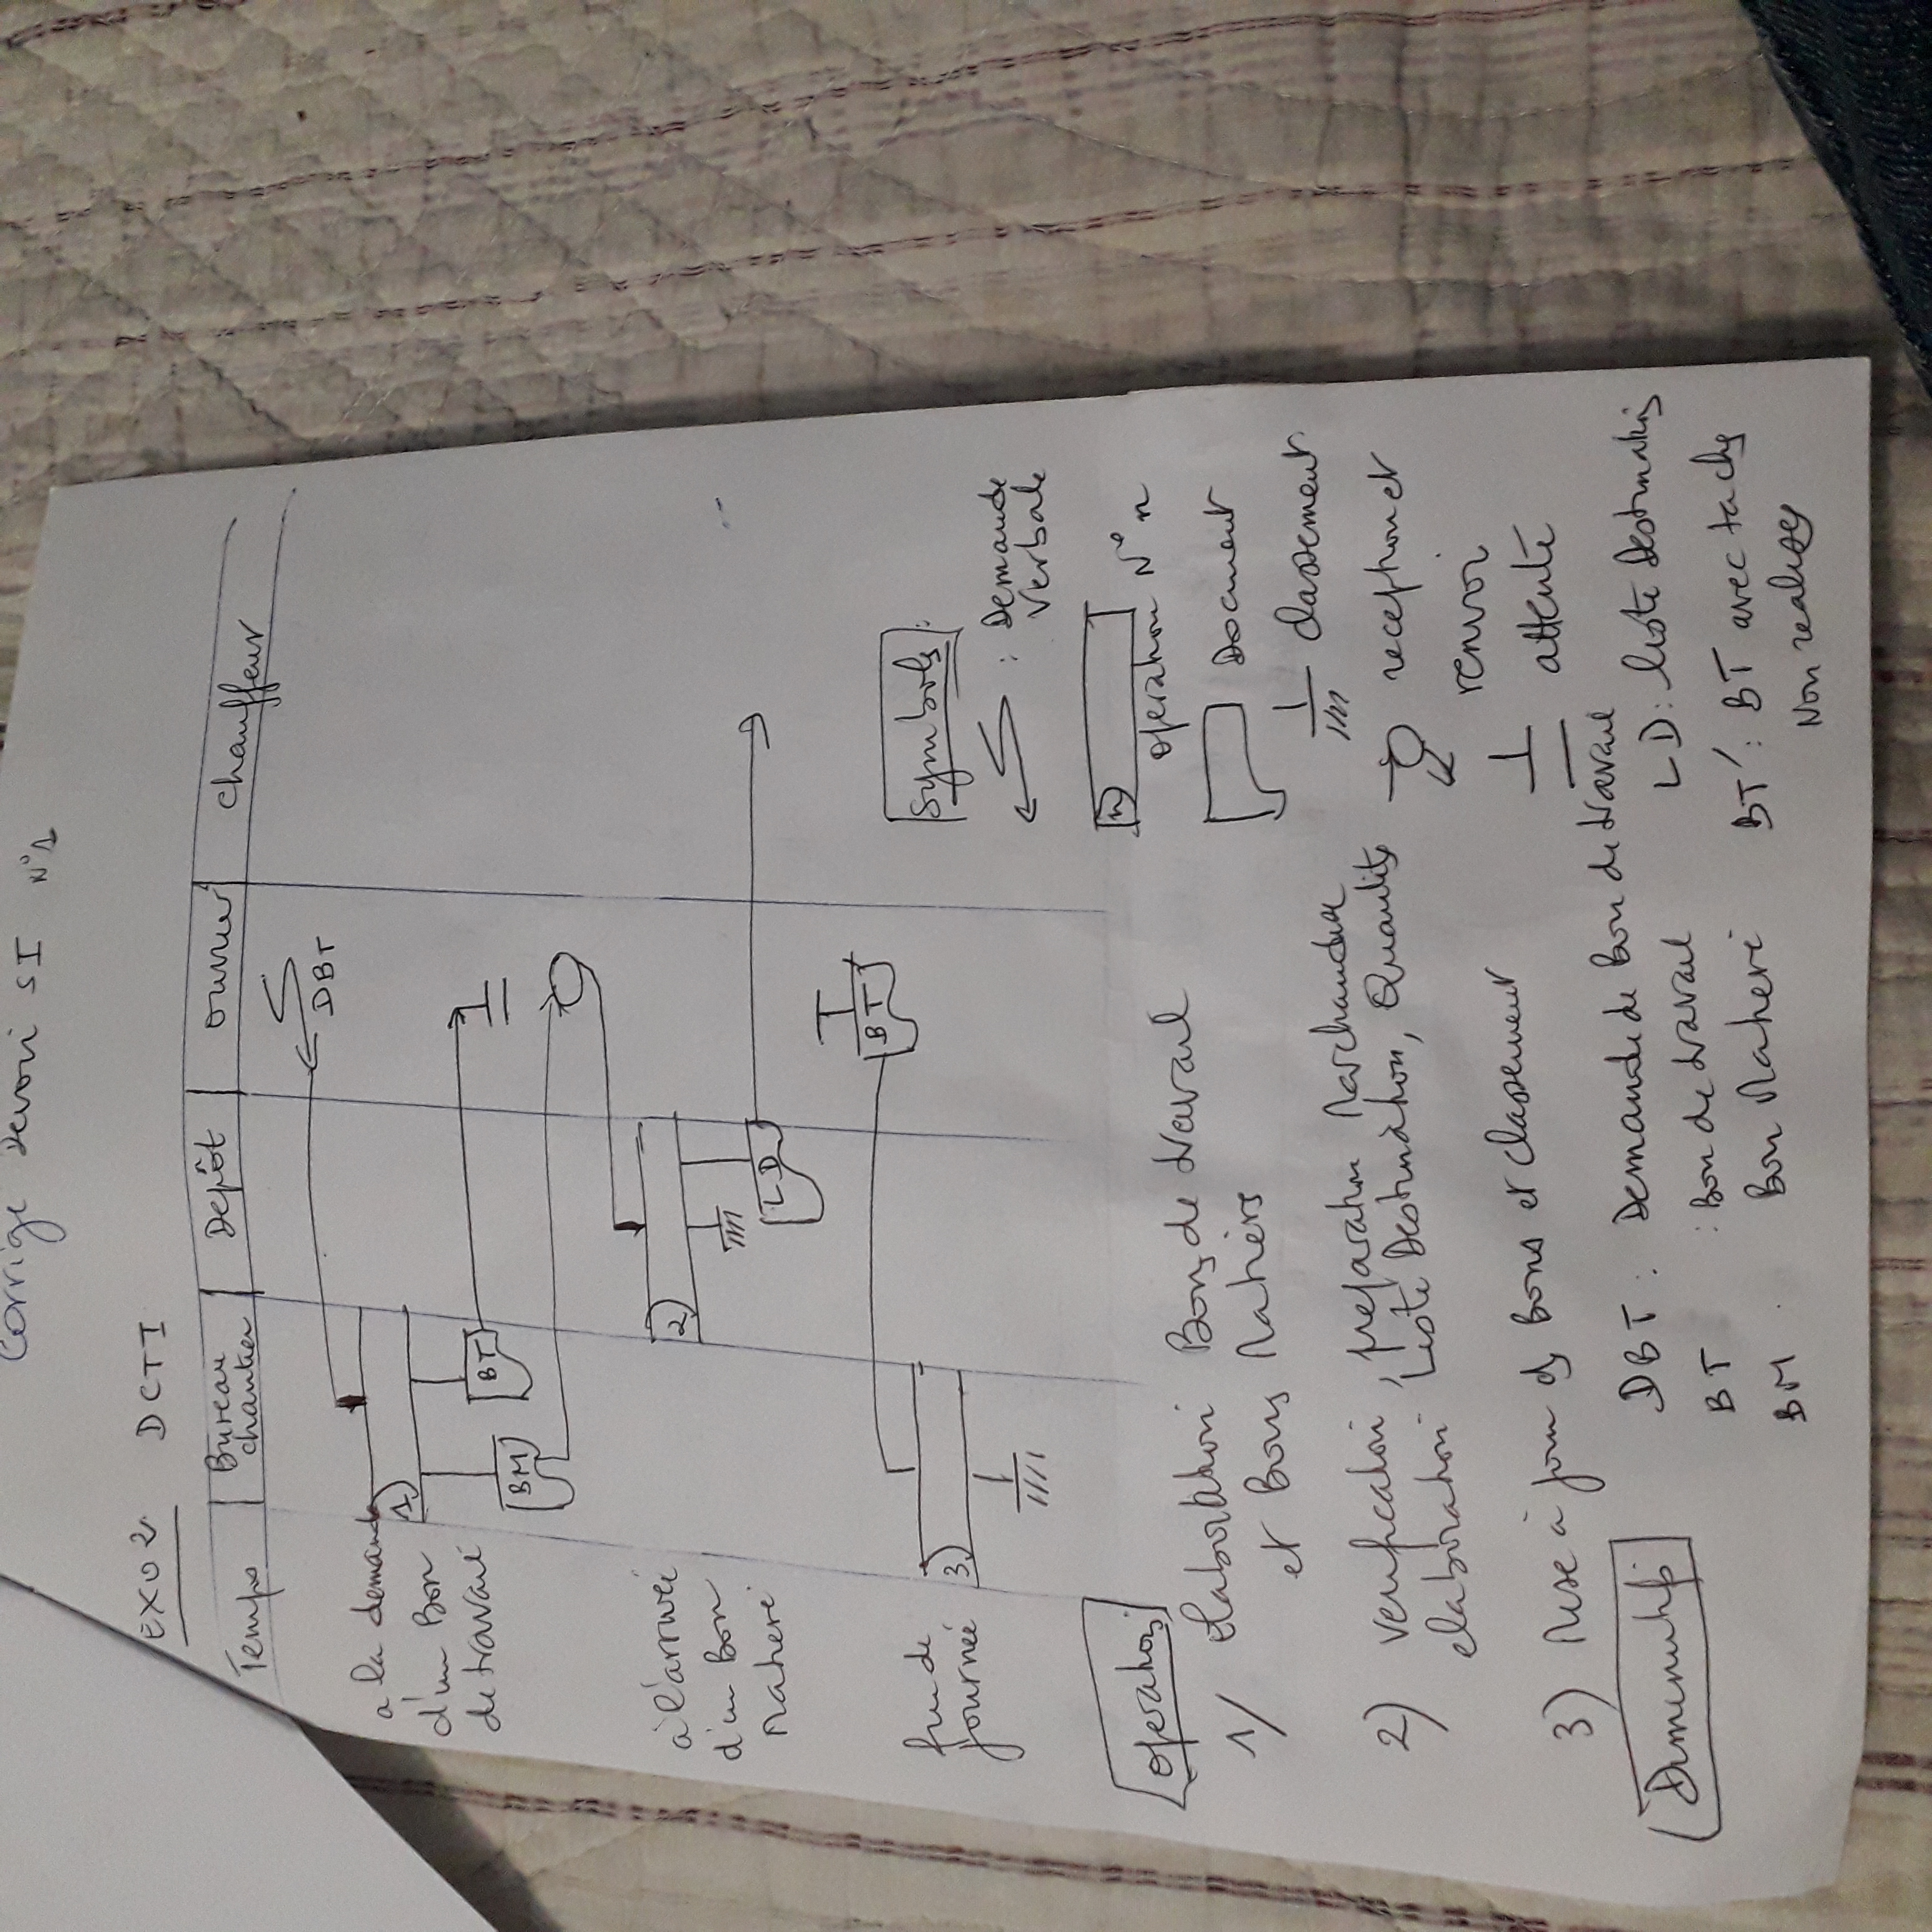 Corrige Devoir SI N°1
EXO2 DCTI
Temps Bureau chantier Depôt ouvrier chauffeur
DBT
a la demande
d'un Bon
de travail
1)
BT
BM
à l'arrivée
d'un Bon
Matiere
2)
LD
BT
fin de
journée
3)
Symbols:
: Demande
Verbale
n)
operation N° n
Document
classement
reception et
renvoi
attente
operations
1/ elaboration Bons de travail
et Bons Matiers
2) verification, preparation Marchandise
elaboration Liste Destination, Quantités
3) Mise à jour ds Bons et classement
Diminutifs
DBT : Demande de Bon de travail
BT : Bon de travail
BM Bon Matiere
LD: liste Destinations
BT': BT avec taches
Non realises